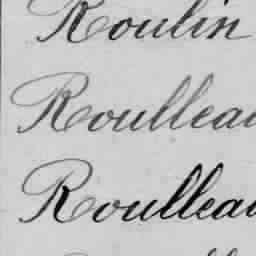 Roulin
Roulleau
Roulleau